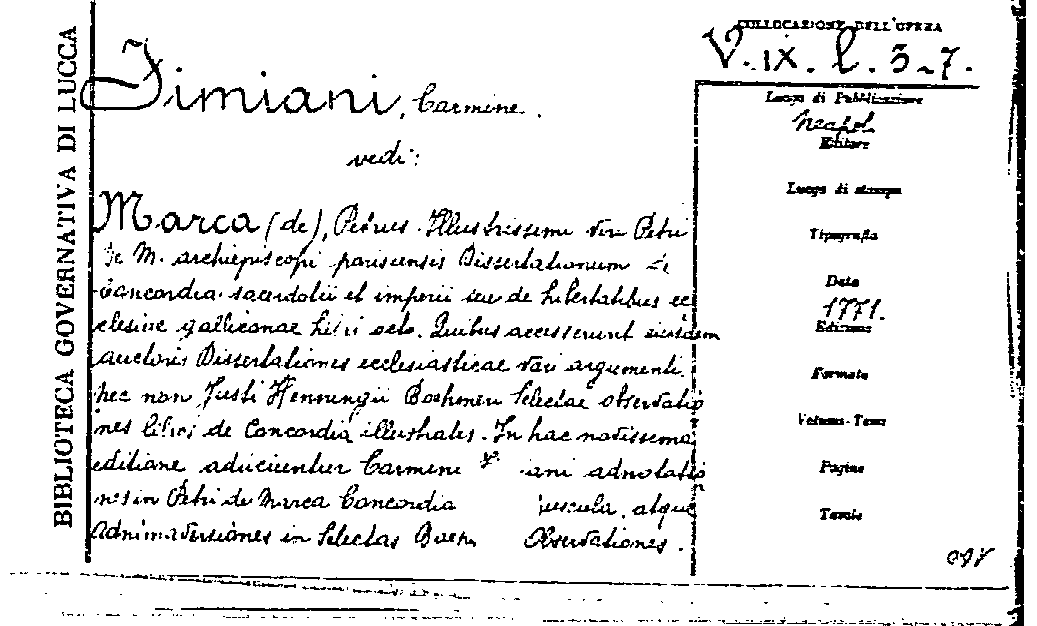 BIBLIOTECA GOVERNATIVA DI LUCCA
COLLOCAZIONE DELL'OPERA
V. IX. l. 3-7.
Fimiani, Carmine.
vedi:
Marca (de), Petrus. Illustrissimi viri Petri
de M. archiepiscopi parisiensis Dissertationum de
Concordia sacerdotii et imperii seu de libertatibus ec
clesiae gallicanae libri octo. Quibus accesserunt eiusdem
auctoris Dissertationes ecclesiasticae varii argumenti.
nec non Justi Henningii Boehmeri Selectae observatio
nes libros de Concordia illustrates. In hac novissima
editione adiiciuntur Carmini iani adnotatio
nes in Petri de Marca Concordia uscula, atque
Adnimadversiones in Selectas Boehm Observationes.
Luogo di Pubblicazione
Neapol
Editore
Luogo di stampa
Tipografia
Data
1771.
Edizione
Formato
Volume-Tomo
Pagine
Tavole